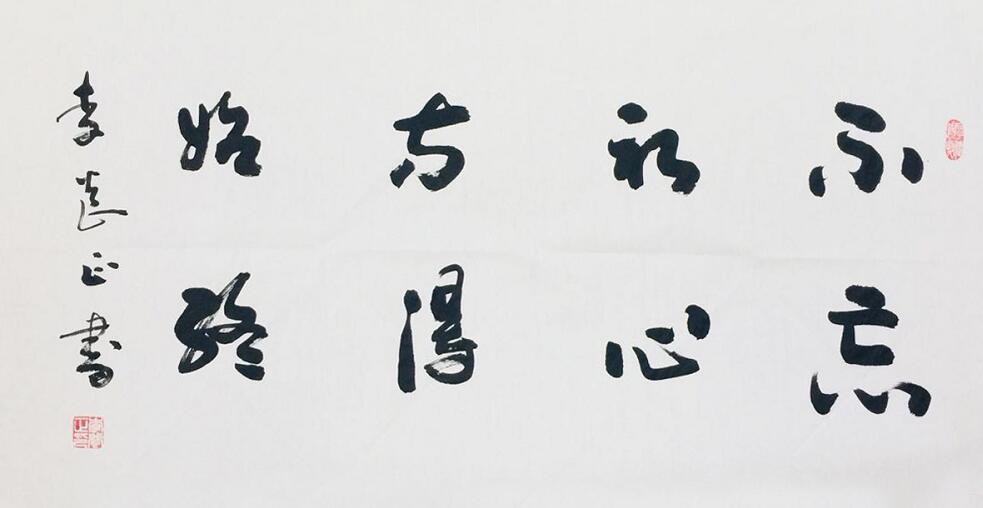 不忘
初心
方得
始终
李正書